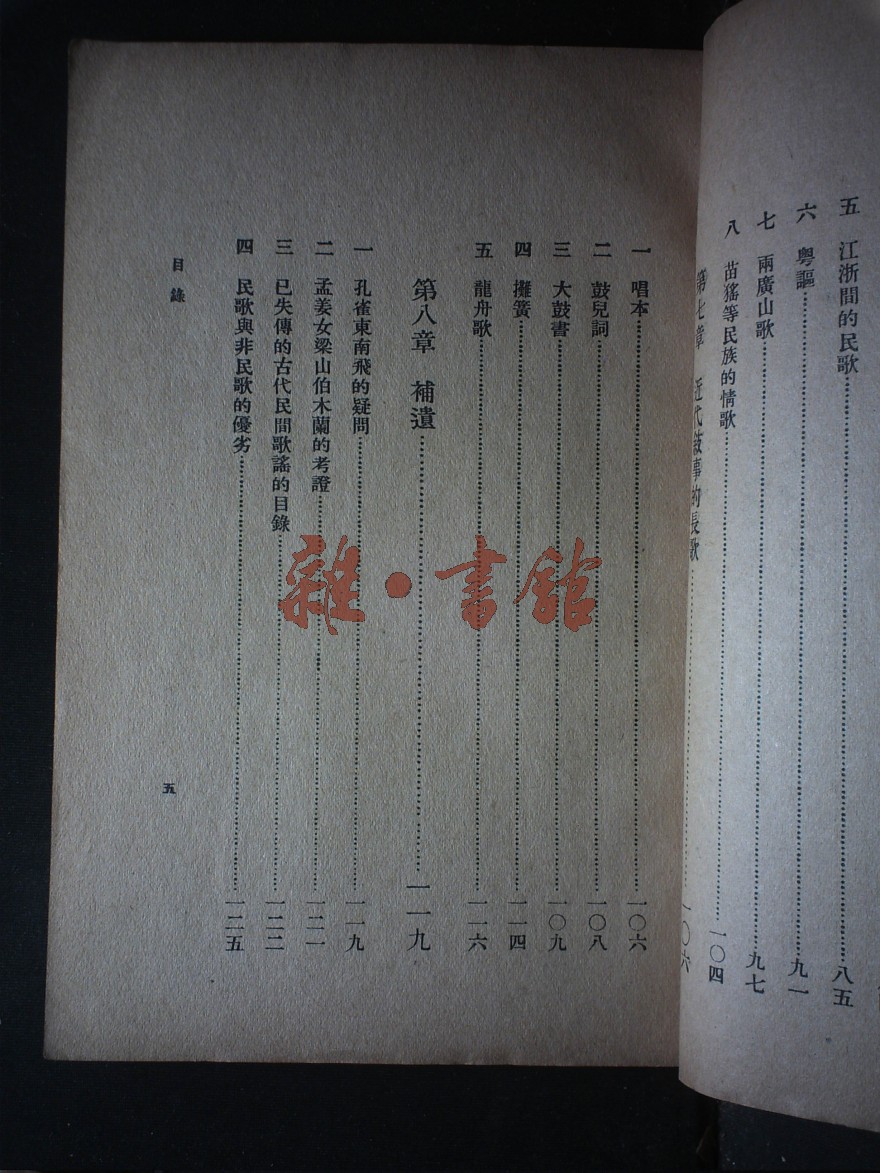 五　江浙間的民歌……八五
六　粵謳……九一
七　兩廣山歌……九七
八　苗猺等民族的情歌……一〇四
第七章　近代敍事的長歌……一〇六
一　唱本……一〇六
二　鼓兒詞……一〇八
三　大鼓書……一〇九
四　攤簧……一一四
五　龍舟歌……一一六
第八章　補遺……一一九
一　孔雀東南飛的疑問……一一九
二　孟姜女梁山伯木蘭的考證……一二一
三　已失傳的古代民間歌謠的目錄……一二二
四　民歌與非民歌的優劣……一二五
目錄
五
雜·書館